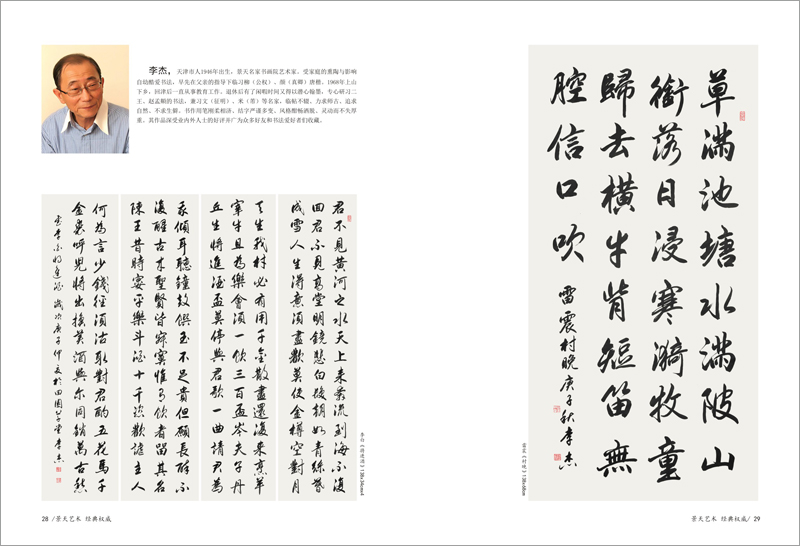 李杰，天津市人1946年出生，景天名家书画院艺术家。受家庭的熏陶与影响
自幼酷爱书法，早先在父亲的指导下临习柳（公权）、颜（真卿）唐楷。1968年上山
下乡，回津后一直从事教育工作。退休后有了闲暇时间又得以潜心翰墨，专心研习二
王、赵孟頫的书法，兼习文（征明）、米（芾）等名家，临帖不辍，力求师古，追求
自然，不求生僻。书作用笔刚柔相济，结字严谨多变，风格酣畅洒脱，灵动而不失厚
重。其作品深受业内外人士的好评并广为众多好友和书法爱好者们收藏。
君不見黃河之水天上來奔流到海不復
回君不見高堂明鏡悲白髮朝如青絲暮
成雪人生得意須盡歡莫使金樽空對月
天生我材必有用千金散盡還復來烹羊
宰牛且為樂會須一飲三百盃岑夫子丹
丘生將進酒盃莫停與君歌一曲請君為
我傾耳聽鐘鼓饌玉不足貴但願長醉不
復醒古來聖賢皆寂寞惟有飲者留其名
陳王昔時宴平樂斗酒十千恣歡謔主人
何為言少錢徑須沽取對君酌五花馬千
金裘呼兒將出換美酒與爾同銷萬古愁
李白將進酒 歲次庚子仲夏於田園草堂李杰
李白《将进酒》138x34cmx4
28 /景天艺术 经典权威
草滿池塘水滿陂山
銜落日浸寒漪牧童
歸去橫牛背短笛無
腔信口吹 雷震村晚庚子秋李杰
雷震《村晚》138x68cm
景天艺术 经典权威/ 29